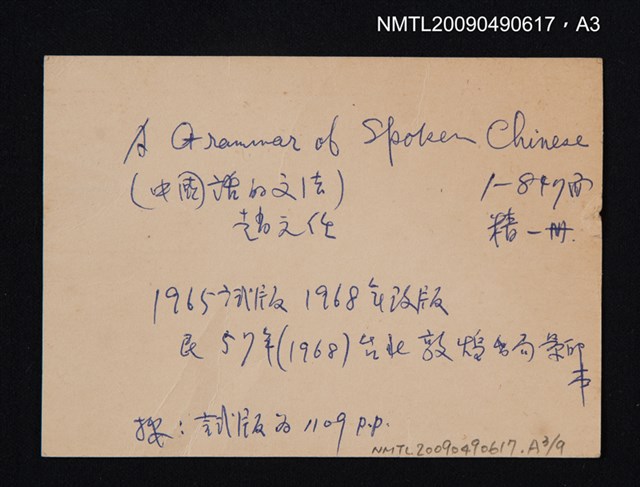 NMTL20090490617，A3
A Grammar of Spoken Chinese
(中國話的文法) 1—847面
趙元任 精一冊.
1965試版 1968年改版
民57年(1968)台北敦煌書局景印本
按：試版为1109 p.p.
NMTL20090490617.A3/9